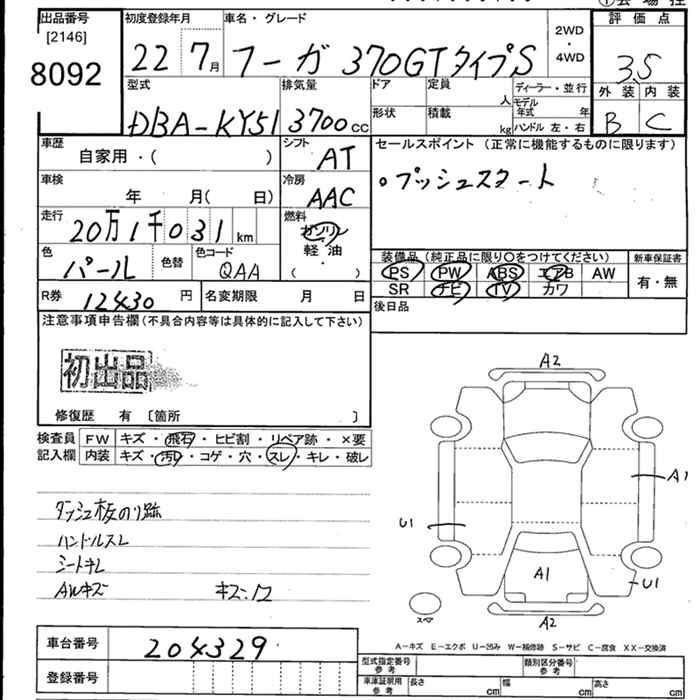 出品番号
[2146]
8092
初度登録年月
22 7月
車名・グレード
フーガ 370GTタイプS
2WD
・
4WD
評価点
3.5
外装 内装
B C
型式
DBA-KY51
排気量
3700cc
ドア
形状
定員
人
積載
kg
ディーラー・並行
モデル年式 年
ハンドル 左・右
車歴
自家用・( )
シフト
AT
車検
年 月( 日)
冷房
AAC
走行
20万1千031km
燃料
ガソリン
軽油
( ・ )
色
パール
色替
色コード
QAA
R券
12430円
名変期限 月 日
セールスポイント (正常に機能するものに限ります)
○プッシュスタート
装備品 (純正品に限り○をつけてください)
PS PW ABS エアB AW
SR ナビ TV カワ
新車保証書
有・無
後日品
注意事項申告欄(不具合内容等は具体的に記入して下さい)
初出品
修復歴 有 〔箇所 〕
検査員記入欄
FW キズ・飛石・ヒビ割・リペア跡・×要
内装 キズ・汚れ・コゲ・穴・スレ・キレ・破レ
ダッシュ板のり跡
ハンドルスレ
シートキレ
AWキズ
キズ:12
A2
A1
U1
A1
U1
A2
スペア
A-キズ E-エクボ U-凹み W-補修跡 S-サビ C-腐食 XX-交換済
車台番号
204329
登録番号
型式指定番号
参考
類別区分番号
参考
車庫証明用
参考
長さ cm
幅 cm
高さ cm